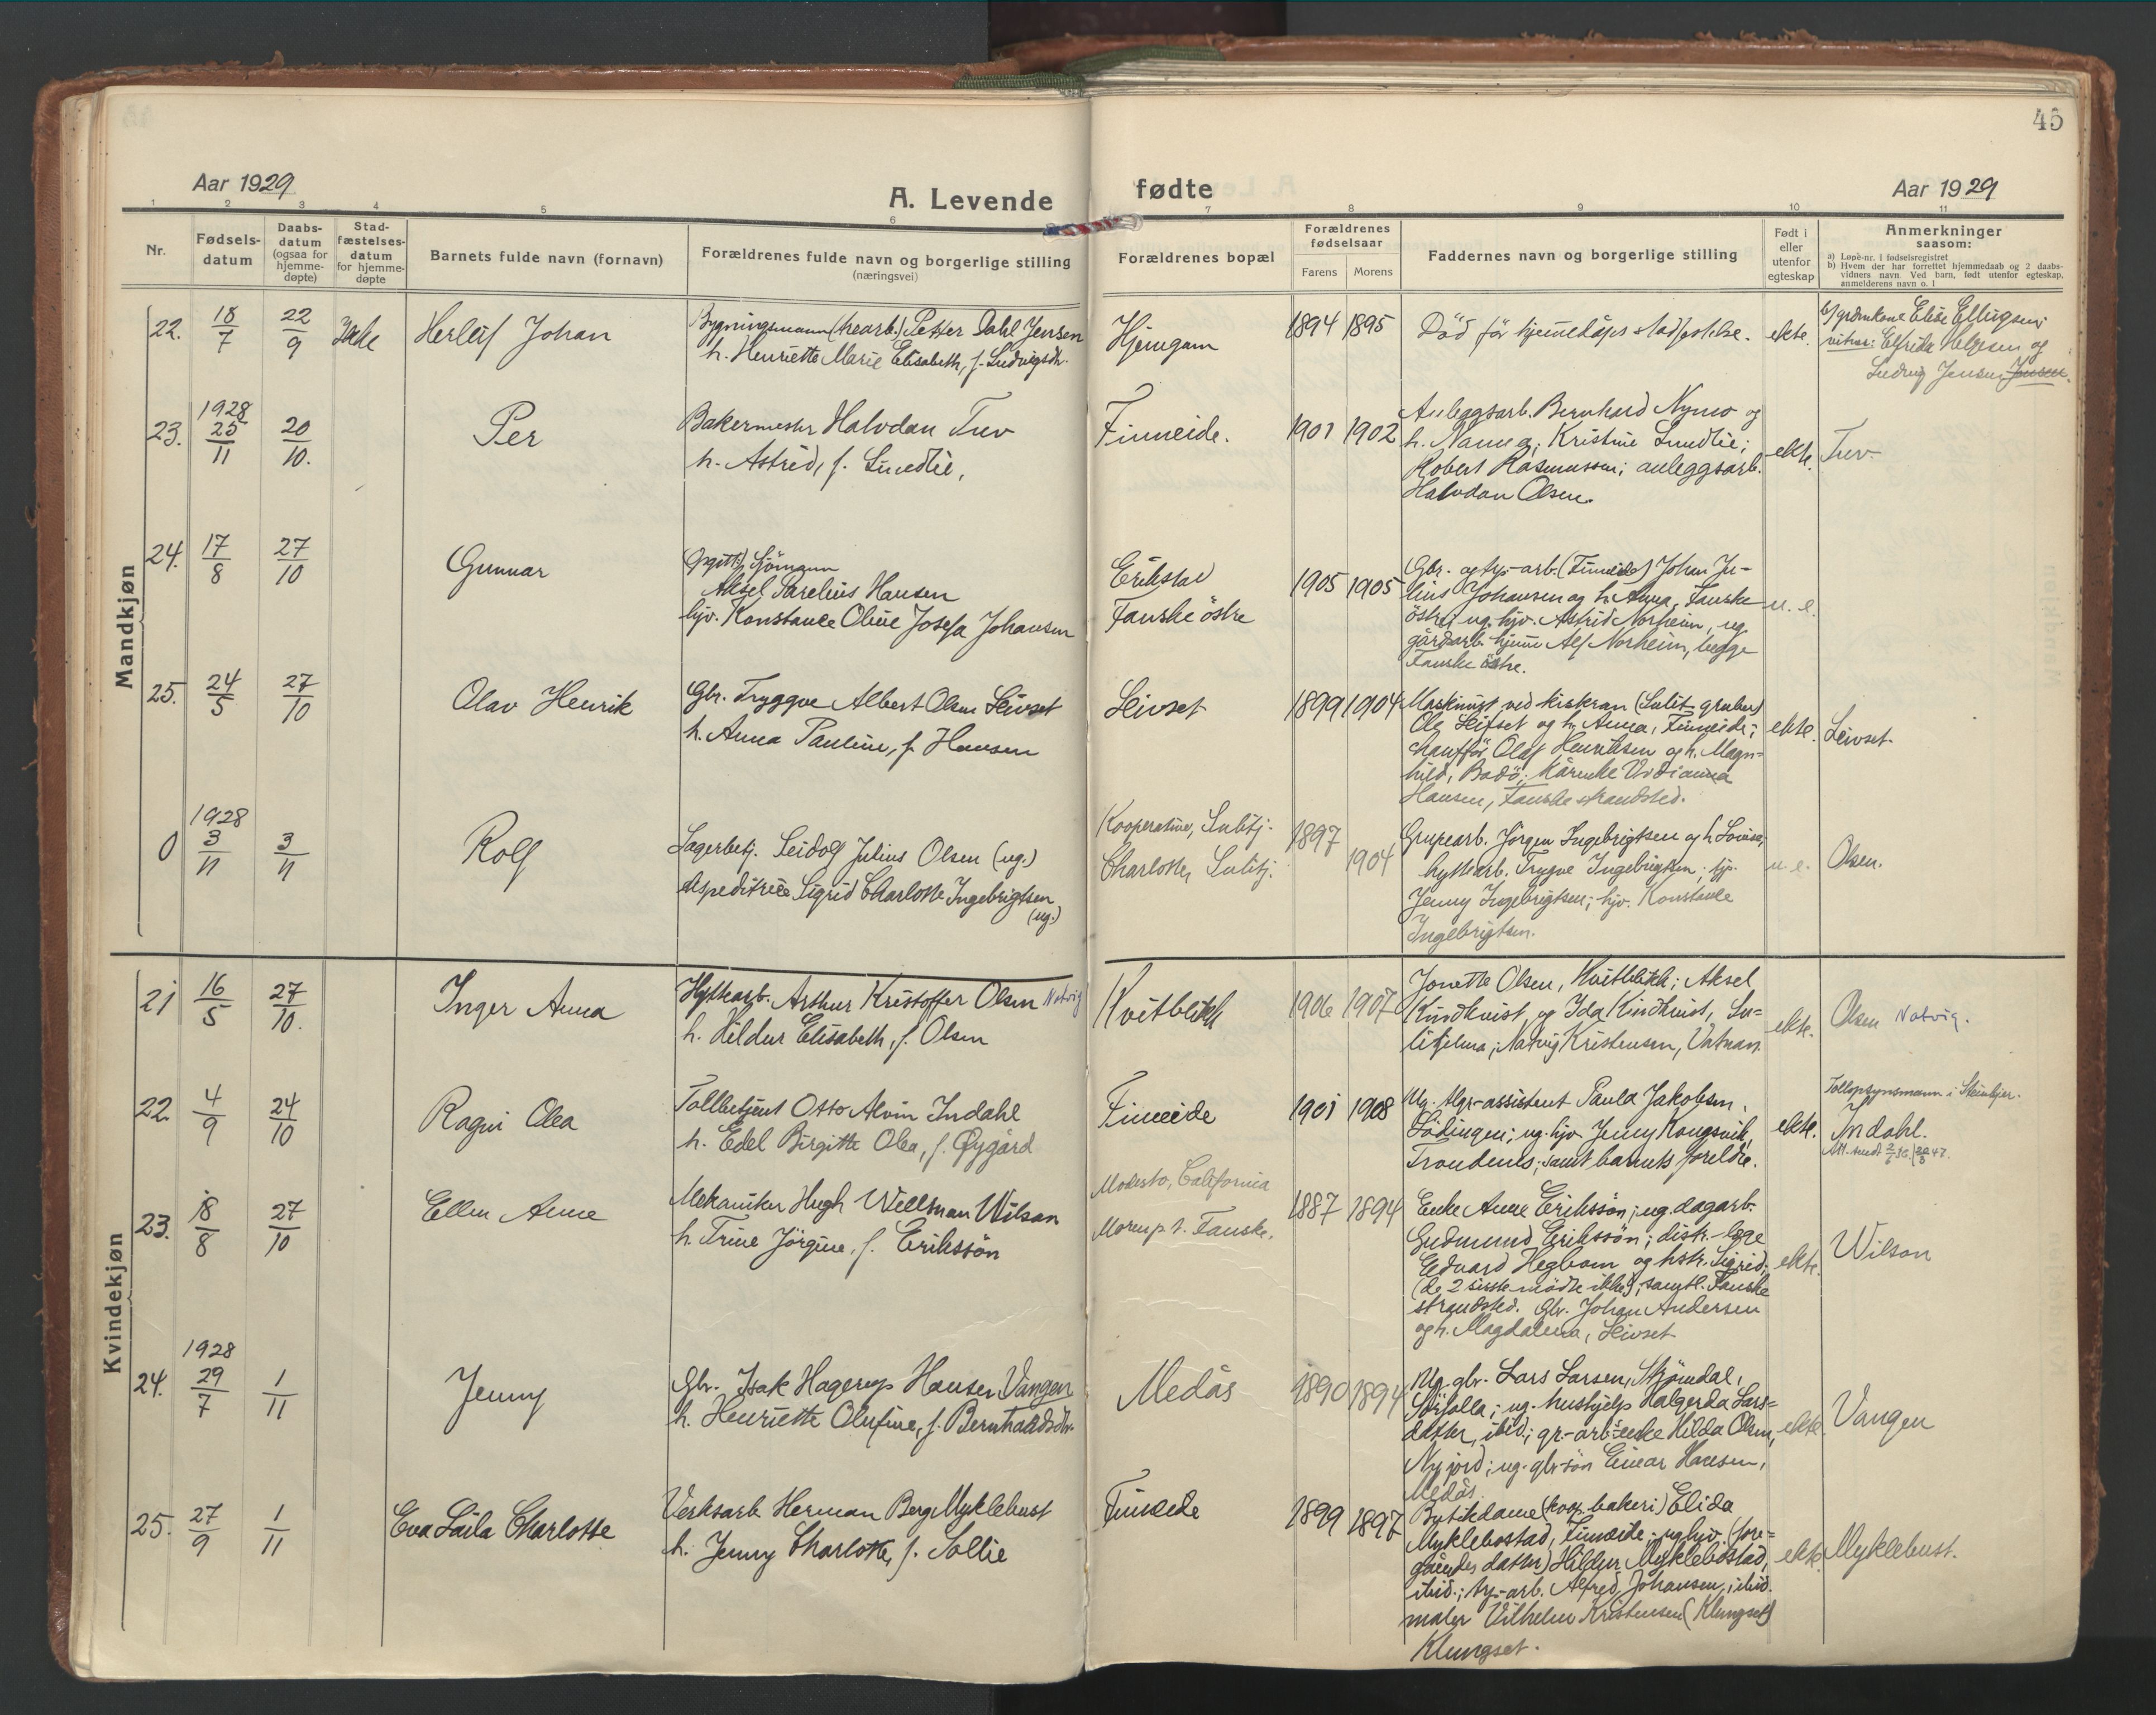 45
Aar 1929
A. Levende
fødte
Aar 1929
1 2 3 4 5 6 7 8 9 10 11
Nr.
Fødsels-
datum
Daabs-
datum
(ogsaa for
hjemme-
døpte)
Stad-
fæstelses-
datum
for hjemme-
døpte
Barnets fulde navn (fornavn)
Forældrenes fulde navn og borgerlige stilling
(næringsvei)
Forældrenes bopæl
Forældrenes
fødselsaar
Farens Morens
Faddernes navn og borgerlige stilling
Født i
eller
utenfor
egteskap
Anmerkninger
saasom:
a) Løpe-nr. i fødselsregistret
b) Hvem der har forrettet hjemmedaab og 2 daabs-
vidners navn. Ved barn, født utenfor egteskap,
anmelderens navn o. l
Mandkjøn
22. 18/7 22/9 Ikke Herleif Johan
Bygningsmann (trearb.) Petter Dahl Jensen
h. Henriette Marie Elisabeth, f. Ludvigsdtr.
Hjemgam
1894 1895
Död för hjemedåpes stadfestelse.
ekte.
b) grdmkone Elise Ellingsen;
vitner: Elfrida Helgesen og
Ludvig Jensen
23. 1928 25/11 20/10. Per
Bakermester Halvdan Tuv
h. Astrid, f. Lundlie,
Finneide.
1901 1902
Anleggsarb. Bernhard Nymo og
h. Nanna; Kristine Lundlie;
Robert Rasmussen; anleggsarb.
Halvdan Olsen.
ekte.
Tuv.
24. 17/8 27/10 Gunnar
(Opgitt) Sjömann
Aksel Parelius Hansen
hjv. Konstanse Oline Josefa Johansen
Erikstad
Fauske östre
1905 1905
Gbr. og tys-arb. (Finneide) Johan Ju-
lius Johansen og h. Anna, Fauske
östre; ug. hjv. Astrid Norheim, ug.
gårdarb. hjemme Alf Norheim, begge
Fauske östre.
u. e.
25. 24/5 27/10 Olav Henrik
Gbr. Tryggve Albert Olsen Leivset
h. Anna Pauline, f. Hansen
Leivset
1899 1904
Maskinist ved kiskran (Sulit. gruber)
Ole Leifset og h. Anna, Finneide;
chaufför Olaf Henriksen og h. Magn-
hild, Bodö; Kårenke Vidianna
Hansen, Fauske strandsted.
ekte.
Leivset.
0 1928 3/11 3/11 Rolf
Lagerbetj. Leidolf Julius Olsen (ug.)
ekspeditrice Sigrid Charlotte Ingebrigtsen
(ug.)
Kooperativen, Sulitj.
Charlotte, Sulitj.
1897
1904
Grupearb. Jörgen Ingebrigtsen og h. Lovise;
hyttearb. Trygve Ingebrigtsen; tjp.
Jenny Ingebrigtsen; hjv. Konstanse
Ingebrigtsen.
u. e.
Olsen.
Kvindekjøn
21 16/5 27/10. Inger Anna
Hyttearb. Arthur Kristoffer Olsen Natvig
h. Hildur Elisabeth, f. Olsen
Kvitblikk
1906 1907
Jonette Olsen, Kvitblikk; Aksel
Kindkvist og Ida Kindkvist, Su-
litjelma; Natvig Kristensen, Vatnan.
ekte.
Olsen Natvig.
22. 4/9 24/10 Ragni Olea
Tollbetjent Otto Alvin Indahl
h. Edel Birgitte Olea, f. Øygård
Finneide
1901 1908
Ug. tlgr-assistent Paula Jakobsen,
Lödingen; ug. hjv. Jenny Kongsvik,
Trondenes; samt barnets foreldre.
ekte.
Tollopsynsmann i Steinkjer.
Indahl.
23. 18/8 27/10 Ellen Anne
Mekaniker Hugh Willman Wilson
h. Trine Jörgine, f. Erikssön
Modesto, California
Moren p. t. Fauske.
1887 1894
Enke Anne Erikssön; ug. dagarb.
Gudmund Erikssön; distr.-lege
Edvard Hegbom og hstr. Sigrid;
(de 2 siste mödte ikke); samtl. Fauske
strandsted. Gbr. Johan Andersen
og h. Magdalena, Leivset
ekte.
Wilson
24. 1928 29/7 1/11 Jenny
Gbr. Isak Hagerup Hansen Vangen
h. Henriette Olufine, f. Bernhardsdtr.
Medås
1890 1894
Ug. gbr. Lars Larsen, Strömdal,
Sörfolla; ug. hushjelp Halgerda Lars-
datter, ibid.; gr.-arb-enke Hilda Olsen,
Nyjord; ug. gbr-sön Einar Hansen,
Medås.
ekte.
Vangen
25. 27/9 1/11 Eva Laila Charlotte
Verksarb. Herman Berg Myklebust
h. Jenny Charlotte, f. Sollie
Finneide
1899 1897
Butikdame (koop. bakeri) Elida
Myklebostad, Finneide; ug hjv. (fore-
gåendes datter) Hildur Myklebostad,
ibid.; tys-arb. Alfred Johansen, ibid.
maler Vilhelm Kristensen (Klungset)
Klungset.
ekte
Myklebust.